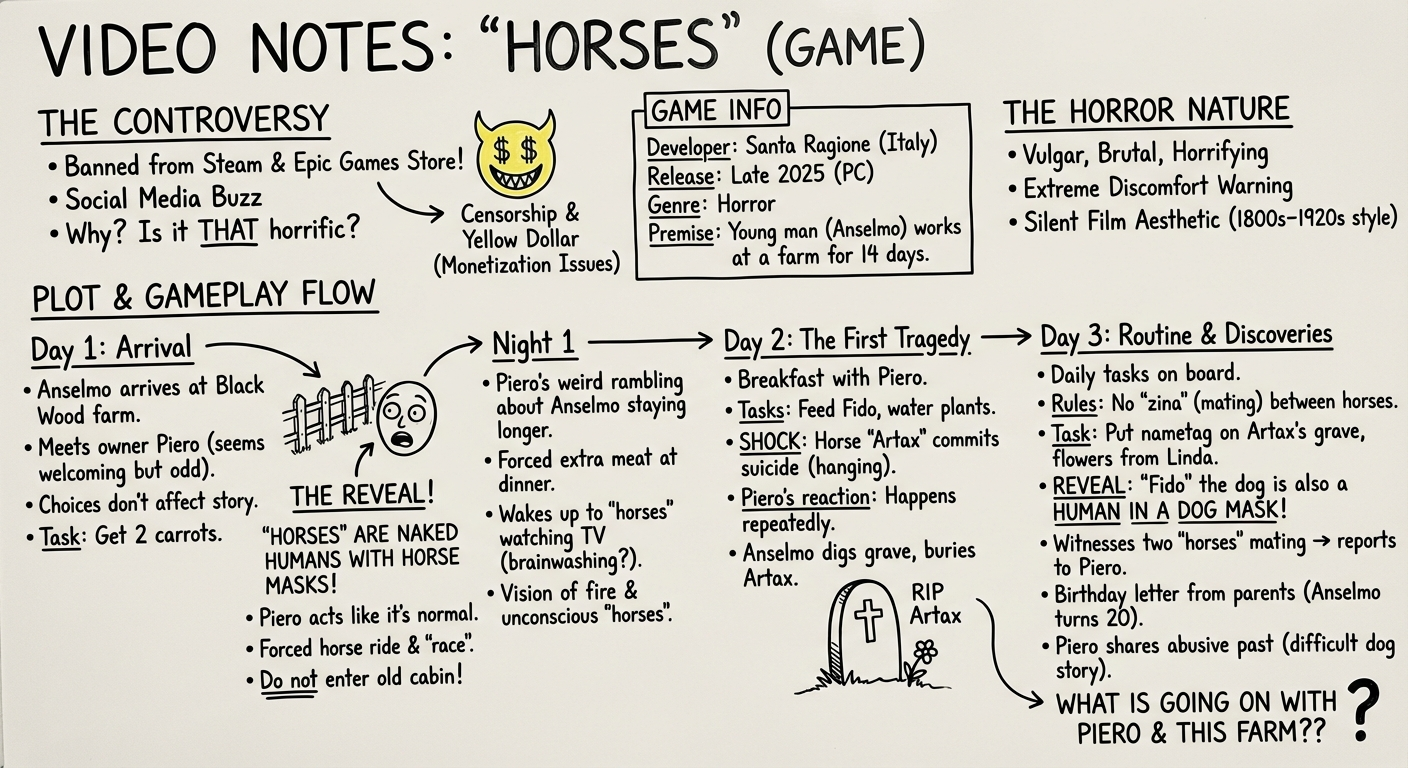 VIDEO NOTES: "HORSES" (GAME)
THE CONTROVERSY
• Banned from Steam & Epic Games Store!
• Social Media Buzz
• Why? Is it THAT horrific?
$ $
Censorship &
Yellow Dollar
(Monetization Issues)
GAME INFO
Developer: Santa Ragione (Italy)
Release: Late 2025 (PC)
Genre: Horror
Premise: Young man (Anselmo) works
at a farm for 14 days.
THE HORROR NATURE
• Vulgar, Brutal, Horrifying
• Extreme Discomfort Warning
• Silent Film Aesthetic (1800s-1920s style)
PLOT & GAMEPLAY FLOW
Day 1: Arrival
• Anselmo arrives at Black
Wood farm.
• Meets owner Piero (seems
welcoming but odd).
• Choices don't affect story.
• Task: Get 2 carrots.
THE REVEAL!
"HORSES" ARE NAKED
HUMANS WITH HORSE
MASKS!
• Piero acts like it's normal.
• Forced horse ride & "race".
• Do not enter old cabin!
Night 1
• Piero's weird rambling
about Anselmo staying
longer.
• Forced extra meat at
dinner.
• Wakes up to "horses"
watching TV
(brainwashing?).
• Vision of fire &
unconscious "horses".
Day 2: The First Tragedy
• Breakfast with Piero.
• Tasks: Feed Fido, water plants.
• SHOCK: Horse "Artax" commits
suicide (hanging).
• Piero's reaction: Happens
repeatedly.
• Anselmo digs grave, buries
Artax.
RIP
Artax
Day 3: Routine & Discoveries
• Daily tasks on board.
• Rules: No "zina" (mating) between horses.
• Task: Put nametag on Artax's grave,
flowers from Linda.
• REVEAL: "Fido" the dog is also a
HUMAN IN A DOG MASK!
• Witnesses two "horses" mating → reports
to Piero.
• Birthday letter from parents (Anselmo
turns 20).
• Piero shares abusive past (difficult dog
story).
WHAT IS GOING ON WITH
PIERO & THIS FARM??
?